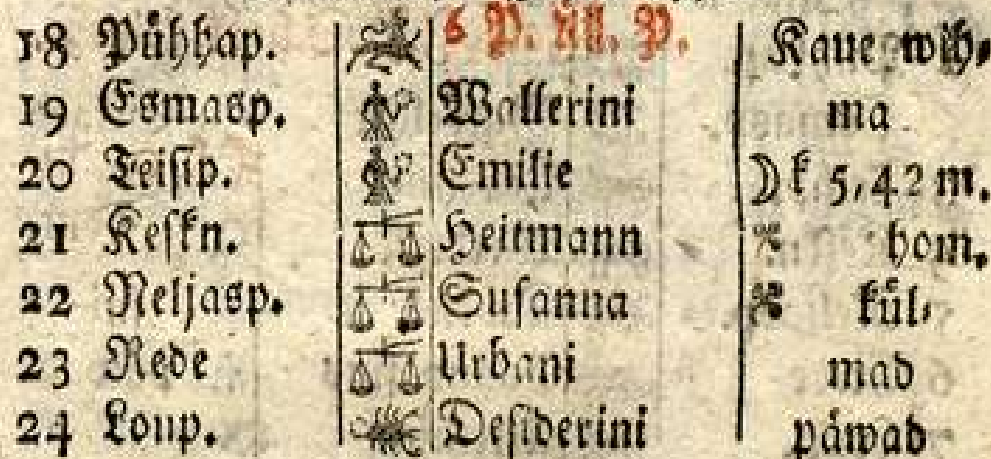 18 Pühhap. 6 P. ül. P. Kaue wih⸗
19 Esmasp. Wallerini ma
20 Teisip. Emilie ☽ k. 5,42 m.
21 Keskn. Heitmann hom.
22 Neljasp. Susanna kül⸗
23 Rede Urbani mad
24 Loup. Desiderini päwad